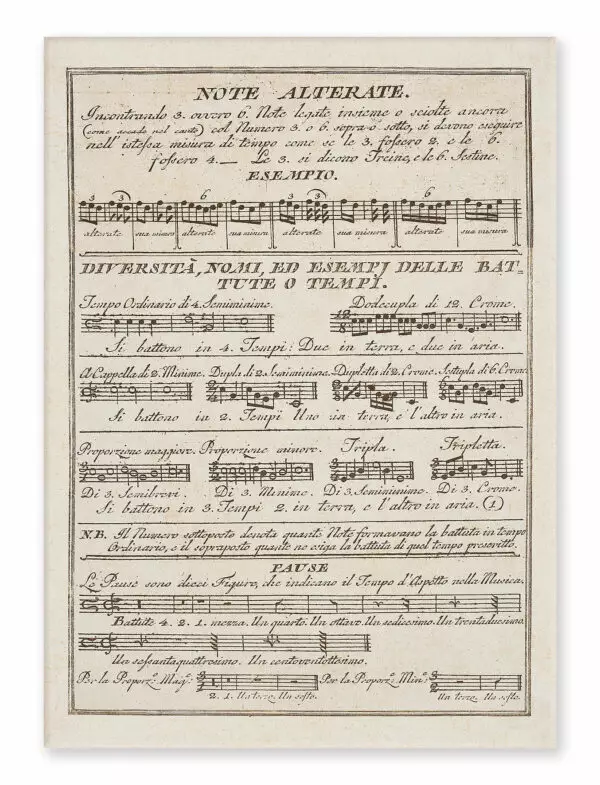 NOTE ALTERATE.
Incontrando 3. ovvero 6. Note legate insieme o sciolte ancora
(come accade nel canto) col Numero 3. o 6. sopra o sotto, si devono eseguire
nell' istessa misura di tempo come se le 3. fossero 2. e le 6.
fossero 4. — Le 3. si dicono Treine, e le 6. Sestine.
ESEMPIO.
3 3 6 3 3 6
alterate sua misura alterate sua misura alterate sua misura alterate sua misura
DIVERSITÀ, NOMI, ED ESEMPJ DELLE BAT-
TUTE O TEMPI.
Tempo Ordinario di 4. Semiminime. Dodecupla di 12. Crome.
12
8
Si battono in 4. Tempi: Due in terra, e due in aria.
A Cappella di 2. Minime. Dupla di 2. Semiminime. Dupletta di 2. Crome. Sestupla di 6. Crome.
Si battono in 2. Tempi Uno in terra, e l'altro in aria.
Proporzione maggiore. Proporzione minore. Tripla. Tripletta.
Di 3. Semibrevi. Di 3. Minime. Di 3. Semiminime. Di 3. Crome.
Si battono in 3. Tempi 2. in terra, e l'altro in aria. (1)
N.B. Il Numero sottoposto denota quante Note formavano la battuta in tempo
Ordinario, e il sovraposto quante ne esiga la battuta di quel tempo prescritto.
PAUSE
Le Pause sono dieci Figure, che indicano il Tempo d'Aspetto nella Musica.
Battute 4. 2. 1. mezza. Un quarto. Un ottavo. Un sedicesimo. Un trentaduesimo.
Un sessantaquattresimo. Un centoventottesimo.
Per la Proporz.e Magg.e Per la Proporz.e Min.e
2. 1. Un terzo. Un sesto. Un terzo. Un sesto.